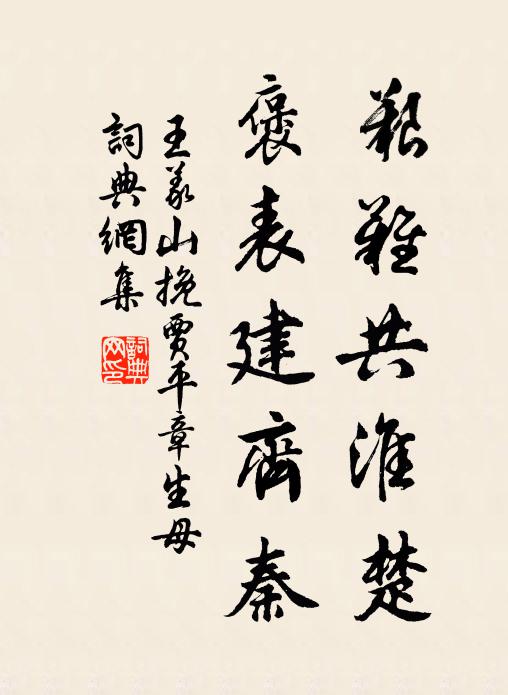 艱難共淮楚
褒表建齊秦
王義山挽賈平章生母
詞典網集
詞典網印